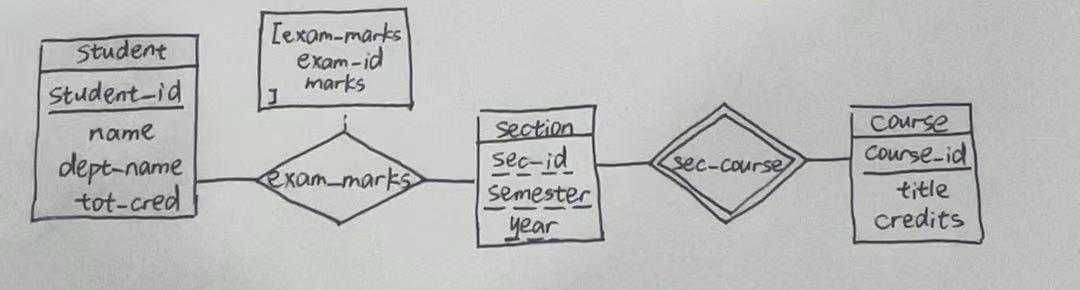 student
student_id
name
dept-name
tot-cred
[exam-marks
exam-id
marks
]
exam_marks
section
sec-id
semester
year
sec-course
course
course_id
title
credits